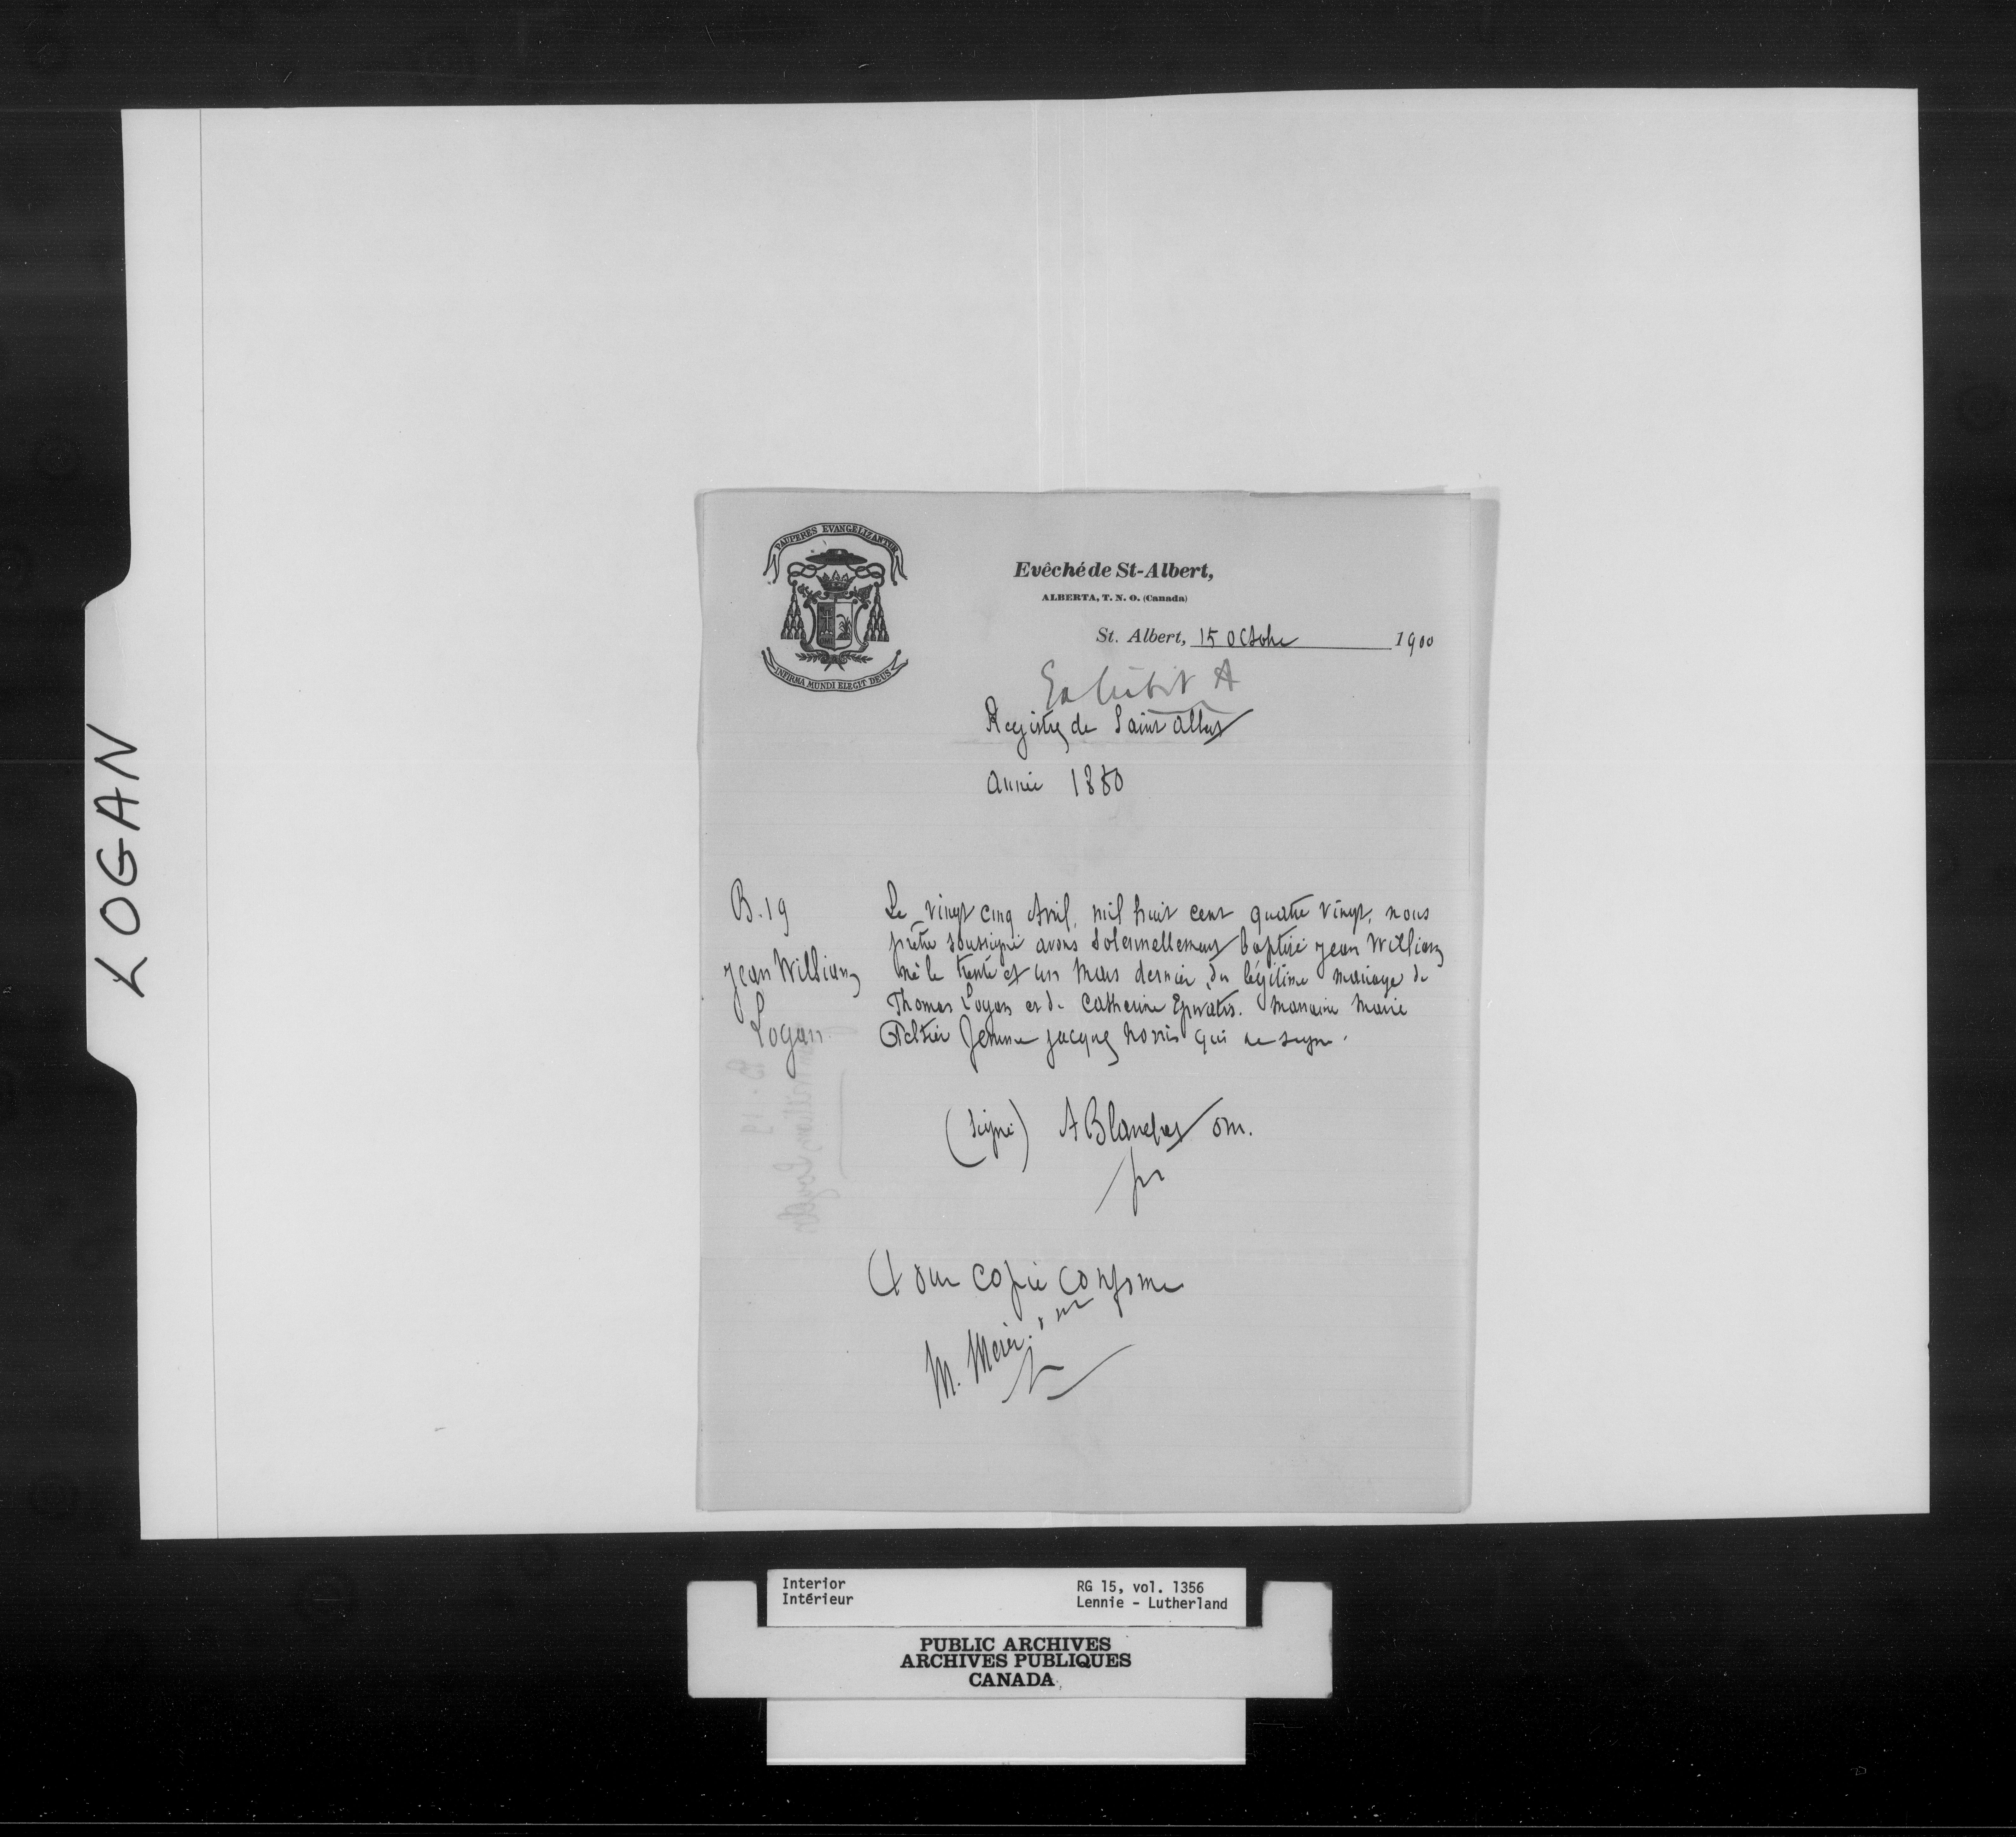 LOGAN
PAUPERES EVANGELIZANTUR
INFIRMA MUNDI ELEGIT DEUS
Evêché de St-Albert,
ALBERTA, T. N. O. (Canada)
St. Albert, 15 Octobre 1900
Exhibit A
Registre de Saint Albert
année 1880
B. 19
Jean William
Logan
Le vingt cinq Avril, mil huit cent quatre vingt, nous
prêtre soussigné avons solennellement baptisé Jean William
né le trente et un Mars dernier, du légitime mariage de
Thomas Logan et de Catherine. Marraine Marie
Peltier femme Jacques Norris qui ne signe.
(signé) A Blanchet om.
Pour copie conforme
M. Merer
Interior
Intérieur
RG 15, vol. 1356
Lennie - Lutherland
PUBLIC ARCHIVES
ARCHIVES PUBLIQUES
CANADA